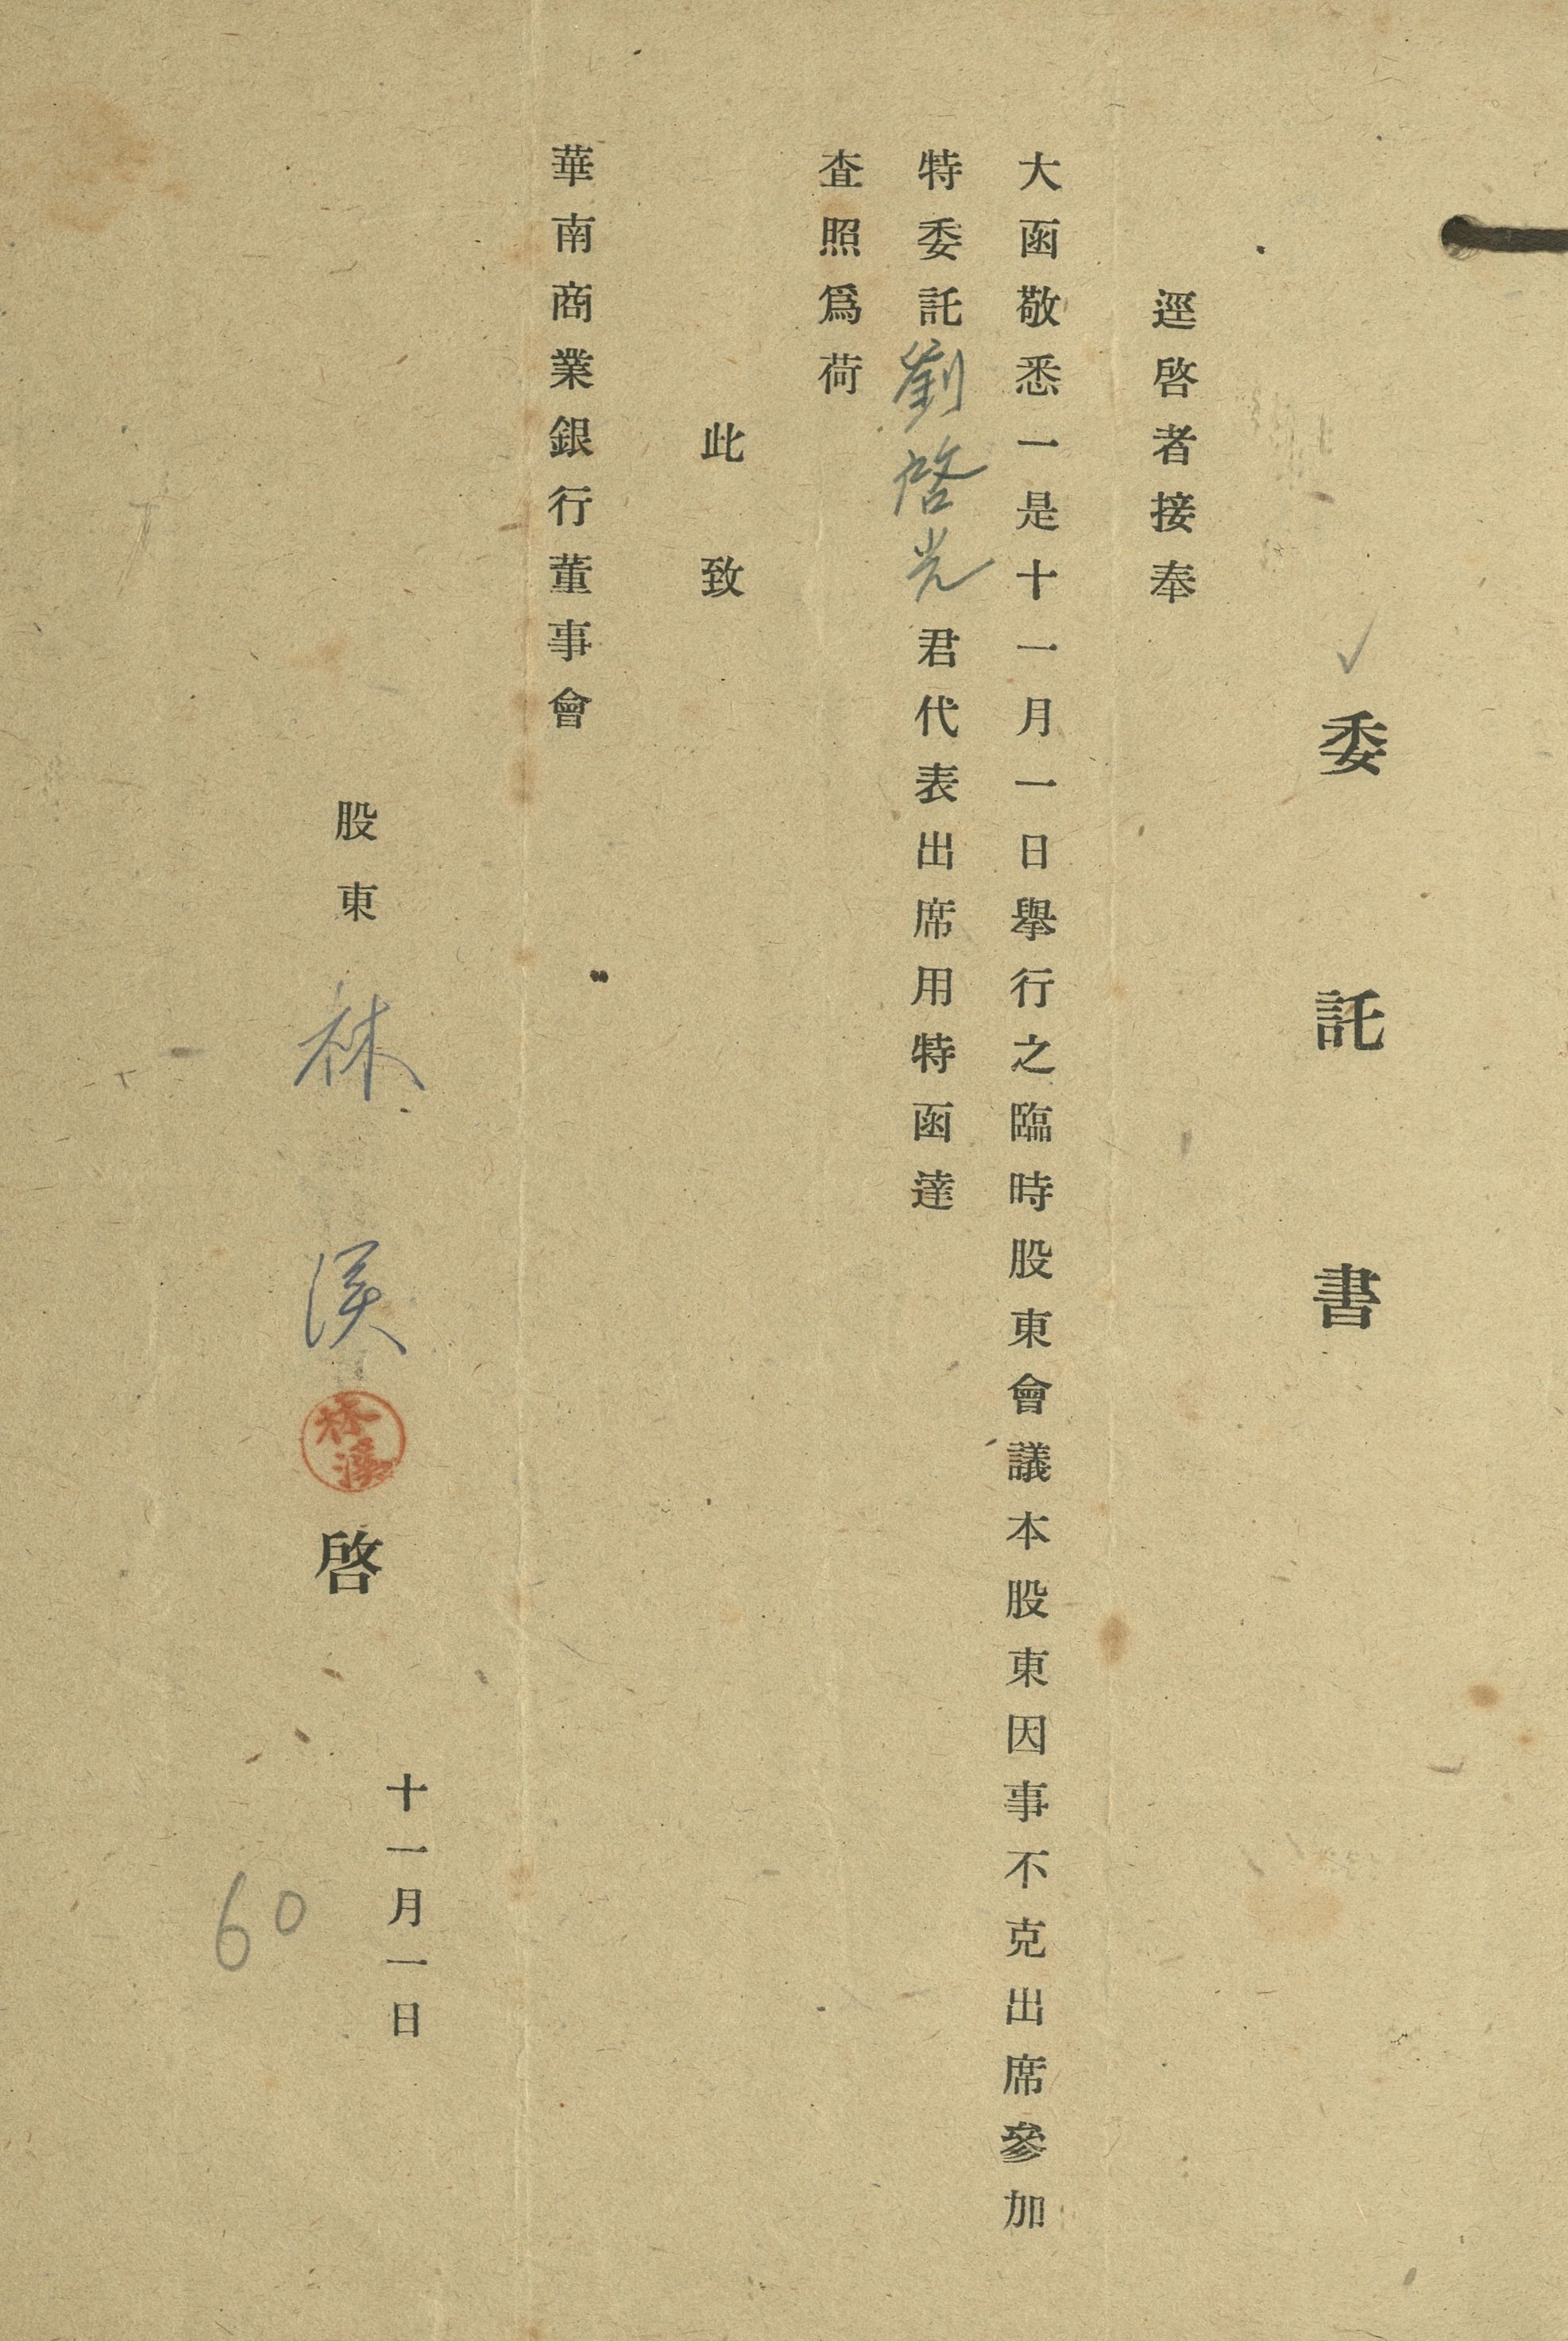 委託書
逕啓者接奉
大函敬悉一是十一月一日舉行之臨時股東會議本股東因事不克出席參加
特委託劉啓光君代表出席用特函達
查照爲荷
此致
華南商業銀行董事會
股東 林溪 啓
林溪
十一月一日
60